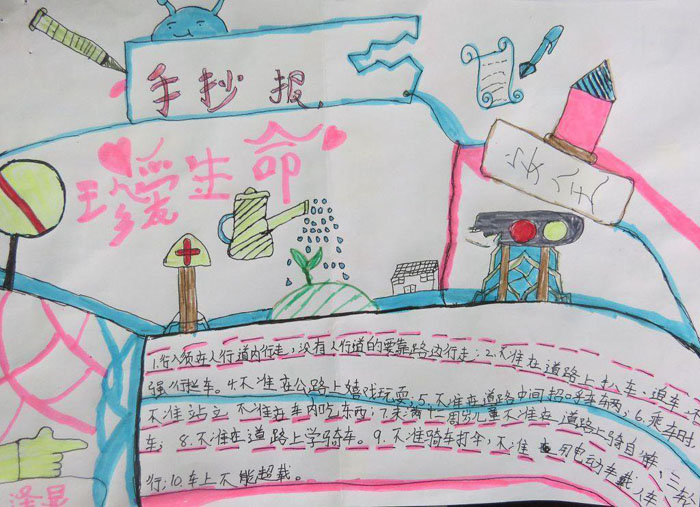 手抄报
珍爱生命
安全
1.行人须在人行道内行走,没有人行道的要靠路边行走;2.不准在道路上扒车,追车,不
强行拦车。4.不准在公路上嬉戏玩耍;5.不准在道路中间招呼车辆;6.乘车时
不准站立 不准在车内吃东西;7.未满十二周岁儿童不准在道路上骑自 三轮
车;8.不准在道路上学骑车。9.不准骑车打车;不准 电动车载人车
行;10.车上不能超载。